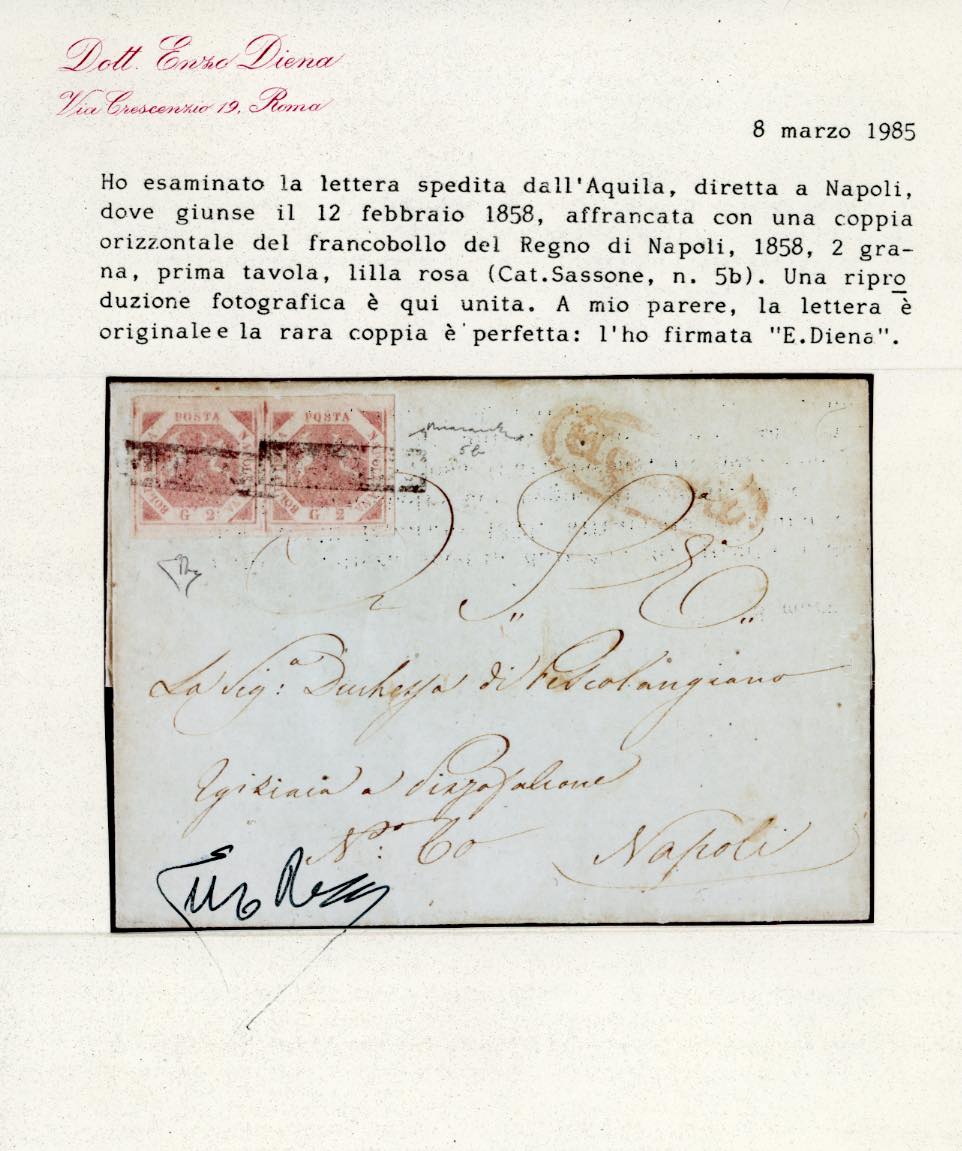 Dott. Enzo Diena
Via Crescenzio 19, Roma
8 marzo 1985
Ho esaminato la lettera spedita dall'Aquila, diretta a Napoli,
dove giunse il 12 febbraio 1858, affrancata con una coppia
orizzontale del francobollo del Regno di Napoli, 1858, 2 gra-
na, prima tavola, lilla rosa (Cat.Sassone, n. 5b). Una ripro
duzione fotografica è qui unita. A mio parere, la lettera è
originale e la rara coppia è perfetta: l'ho firmata "E.Diena".
POSTA POSTA
G 2 G 2
5b
La Sig.a Duchessa di Pescolangiano
a Pizzofalcone
N.o 60 Napoli